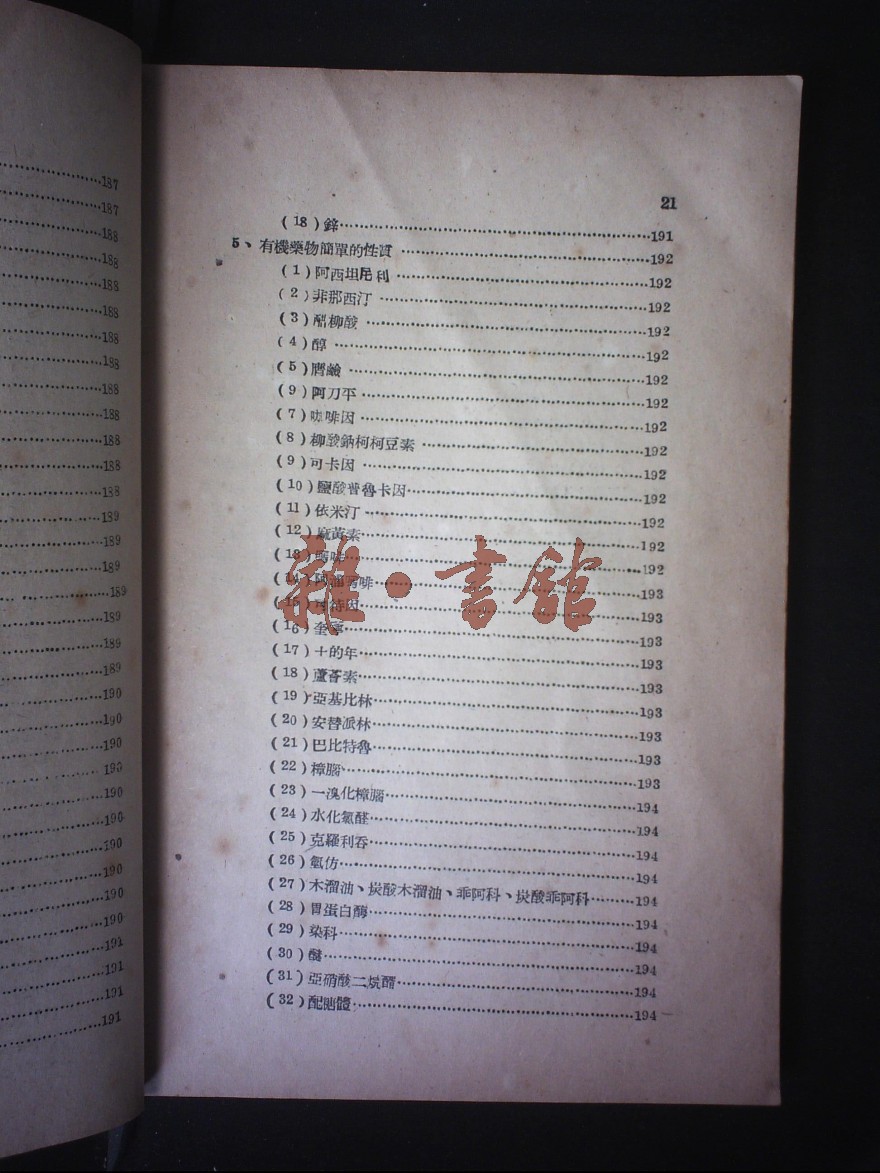 187
187
188
188
188
188
188
188
188
188
188
188
188
189
189
189
189
189
189
189
190
190
190
190
190
190
190
190
190
191
191
191
191
21
(18)鋅……191
5、有機藥物簡單的性質……192
(1)阿西坦尼利……192
(2)非那西汀……192
(3)醋柳酸……192
(4)醇……192
(5)膺鹼……192
(9)阿刀平……192
(7)咖啡因……192
(8)柳酸鈉柯柯豆素……192
(9)可卡因……192
(10)鹽酸普魯卡因……192
(11)依米汀……192
(12)麻黃素……192
(13)嗎啡……192
(14)阿泊嗎啡……193
(15)可待因……193
(16)奎寧……193
(17)士的年……193
(18)蘆薈素……193
(19)亞基比林……193
(20)安替派林……193
(21)巴比特魯……193
(22)樟腦……193
(23)一溴化樟腦……194
(24)水化氯醛……194
(25)克羅利吞……194
(26)氯仿……194
(27)木溜油、炭酸木溜油、乖阿科、炭酸乖阿科……194
(28)胃蛋白酶……194
(29)染科……194
(30)醚……194
(31)亞硝酸二烷酯……194
(32)配貽體……194
雜·書館